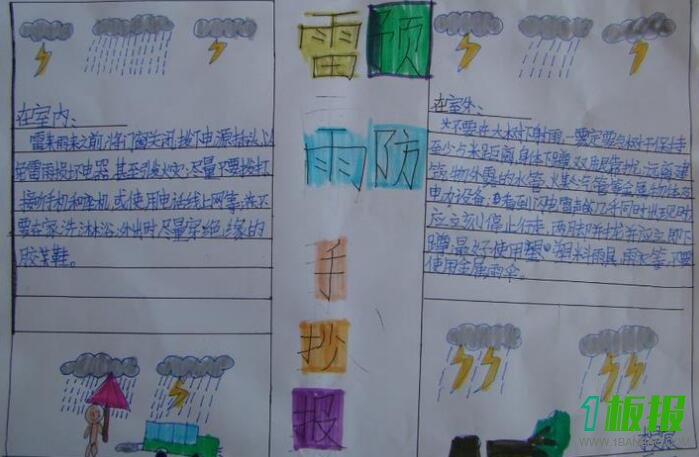 雷 预
雨 防
手
抄
报
在室内:
雷来雨来之前,将门窗关闭,拔下电源插头,以
雷雨损坏电器,甚至引发火灾,尽量不要拨打
接听手机和座机,或使用电话线上网等,
要在家洗淋浴,外出时尽量穿绝缘的
胶鞋。
在室外:
不要在大树下躲雨,一定要与树干保持
至少 米距离,身体下蹲,双 靠拢,远离建
筑物外露的水管、煤气管等金属物体
电力设备。看到闪电雷声 几乎同时出现时
应立刻停止行走,两脚并拢并应立即下
蹲,最好使用塑料雨具、雨衣等,不要
使用金属雨伞。
1板报
WWW.1BAN